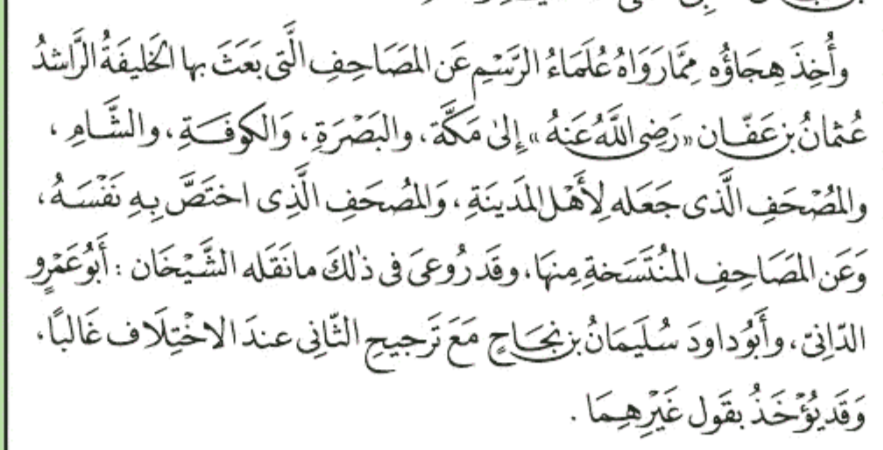 وأُخِذَ هِجَاؤُه مِمَّا رَوَاهُ عُلَمَاءُ الرَّسْمِ عَنِ المَصَاحِفِ الَّتِى بَعَثَ بها الخَلِيفَةُ الرَّاشِدُ
عُثمانُ بنُ عَفَّان «رَضِىَ اللَّهُ عَنهُ» إِلىٰ مَكَّةَ، والبَصْرَةِ، وَالكوفَةِ، والشَّامِ،
والمُصْحَفِ الَّذى جَعَله لِأَهْلِ المَدينَةِ، وَالمُصْحَفِ الَّذِى اختَصَّ بِهِ نَفْسَهُ،
وَعَنِ المَصَاحِفِ المُنْتَسَخةِ مِنهَا، وقَد رُوعىَ فى ذٰلكَ مانَقَله الشَّيْخَان : أَبُوعَمْرٍو
الدّانِىّ، وأَبُوداودَ سُلَيمَانُ بنُ نجَاحٍ مَعَ تَرجيحِ الثَّانِى عندَ الاخْتِلَاف غَالبًا،
وَقَد يُؤْخَذُ بقَول غَيْرِهِمَا .